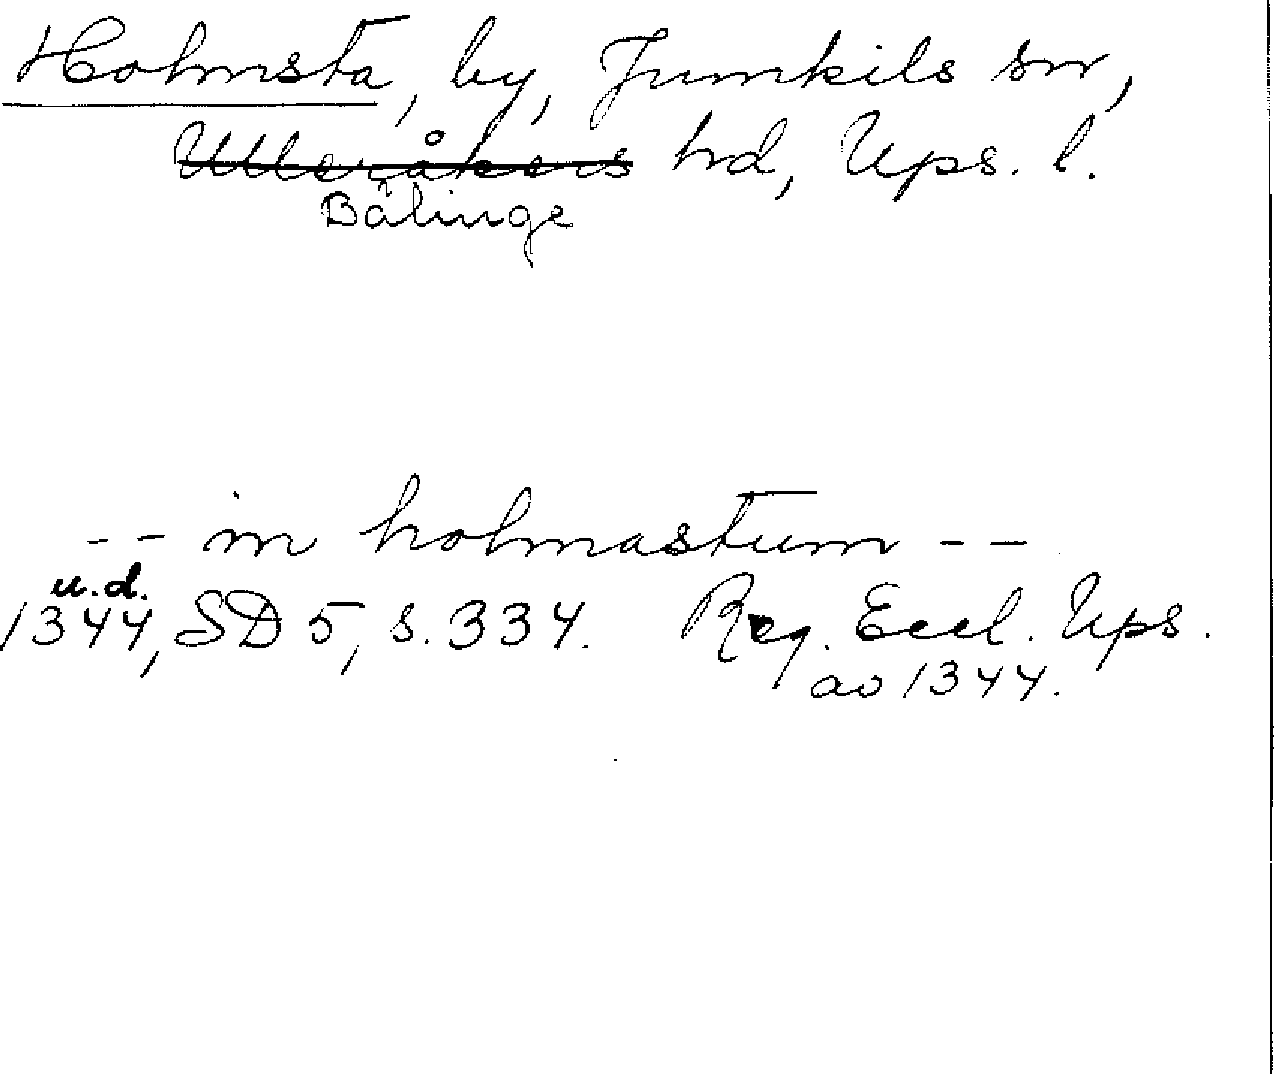 Holmsta, by, Jumkils sn,
Ulleråkers hd, Ups. l.
Bälinge
-- in holmastum --
u.d.
1344, SD 5, s. 334. Reg. Eccl. Ups.
ao 1344.